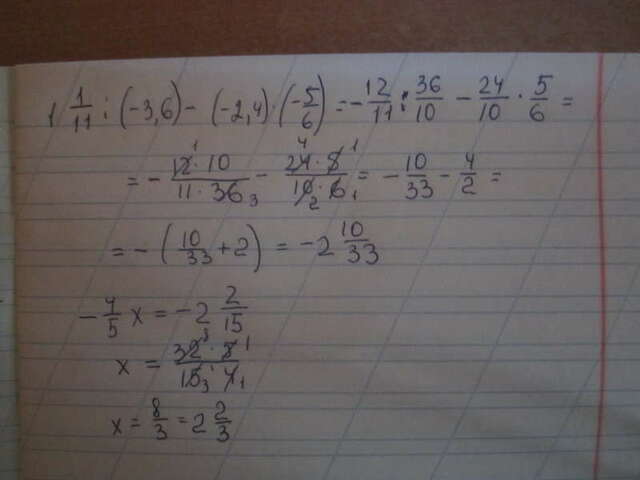 1 1/11 : (-3,6) - (-2,4) · (-5/6) = -12/11 : 36/10 - 24/10 · 5/6 =
= - 12·10/11·36 - 24·5/10·6 = - 10/33 - 4/2 =
= - (10/33 + 2) = -2 10/33
- 4/5 x = -2 2/15
x = 32·5/15·4
x = 8/3 = 2 2/3